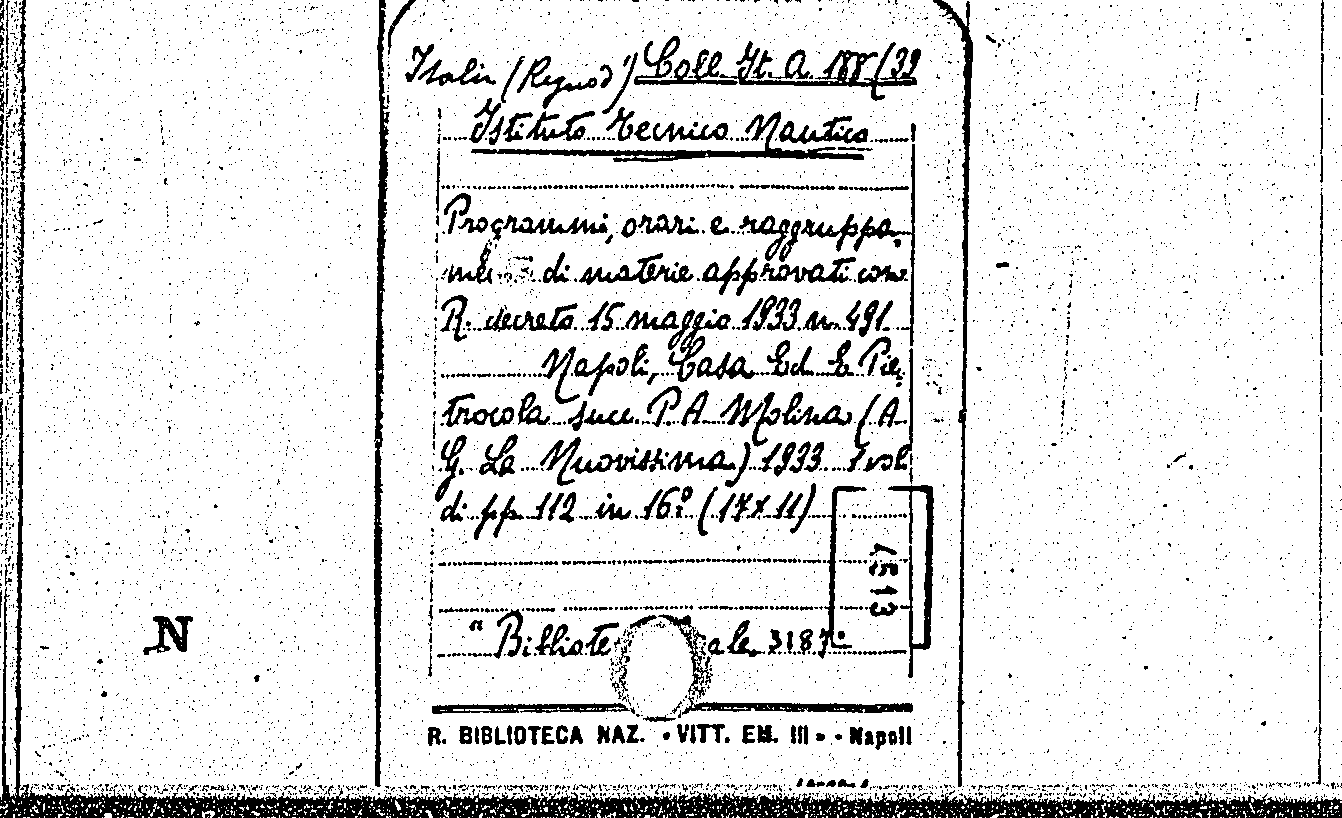 Italia (Regno d') Coll. It. A. 188/(39
Istituto Tecnico Nautico
Programmi, orari e raggruppa-
di materie approvati con
R. decreto 15 maggio 1933 n. 491
Napoli, Casa Ed. E. Pie-
trocola succ. P. A. Molina (A.
G. La Nuovissima) 1933 1 vol
di pp. 112 in 16.º (17x11)
4513
" 3187"
N
R. BIBLIOTECA NAZ. "VITT. EM. III" - Napoli